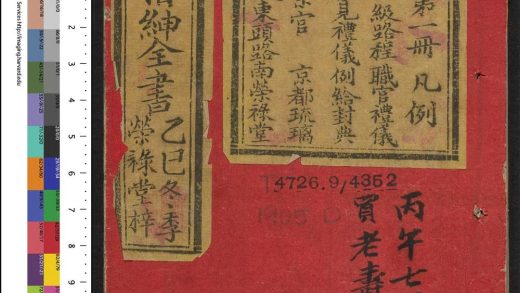 第一冊 凡例
級路程 職官禮儀
見禮儀 例給封典
官 京都琉璃
東頭路南榮祿堂
紳全書
乙巳冬季
榮祿堂梓
T4726.9/4352
1905
丙午七
買老壽
Services http://imaging.harvard.edu
2
3
4
5
6
7
8
9